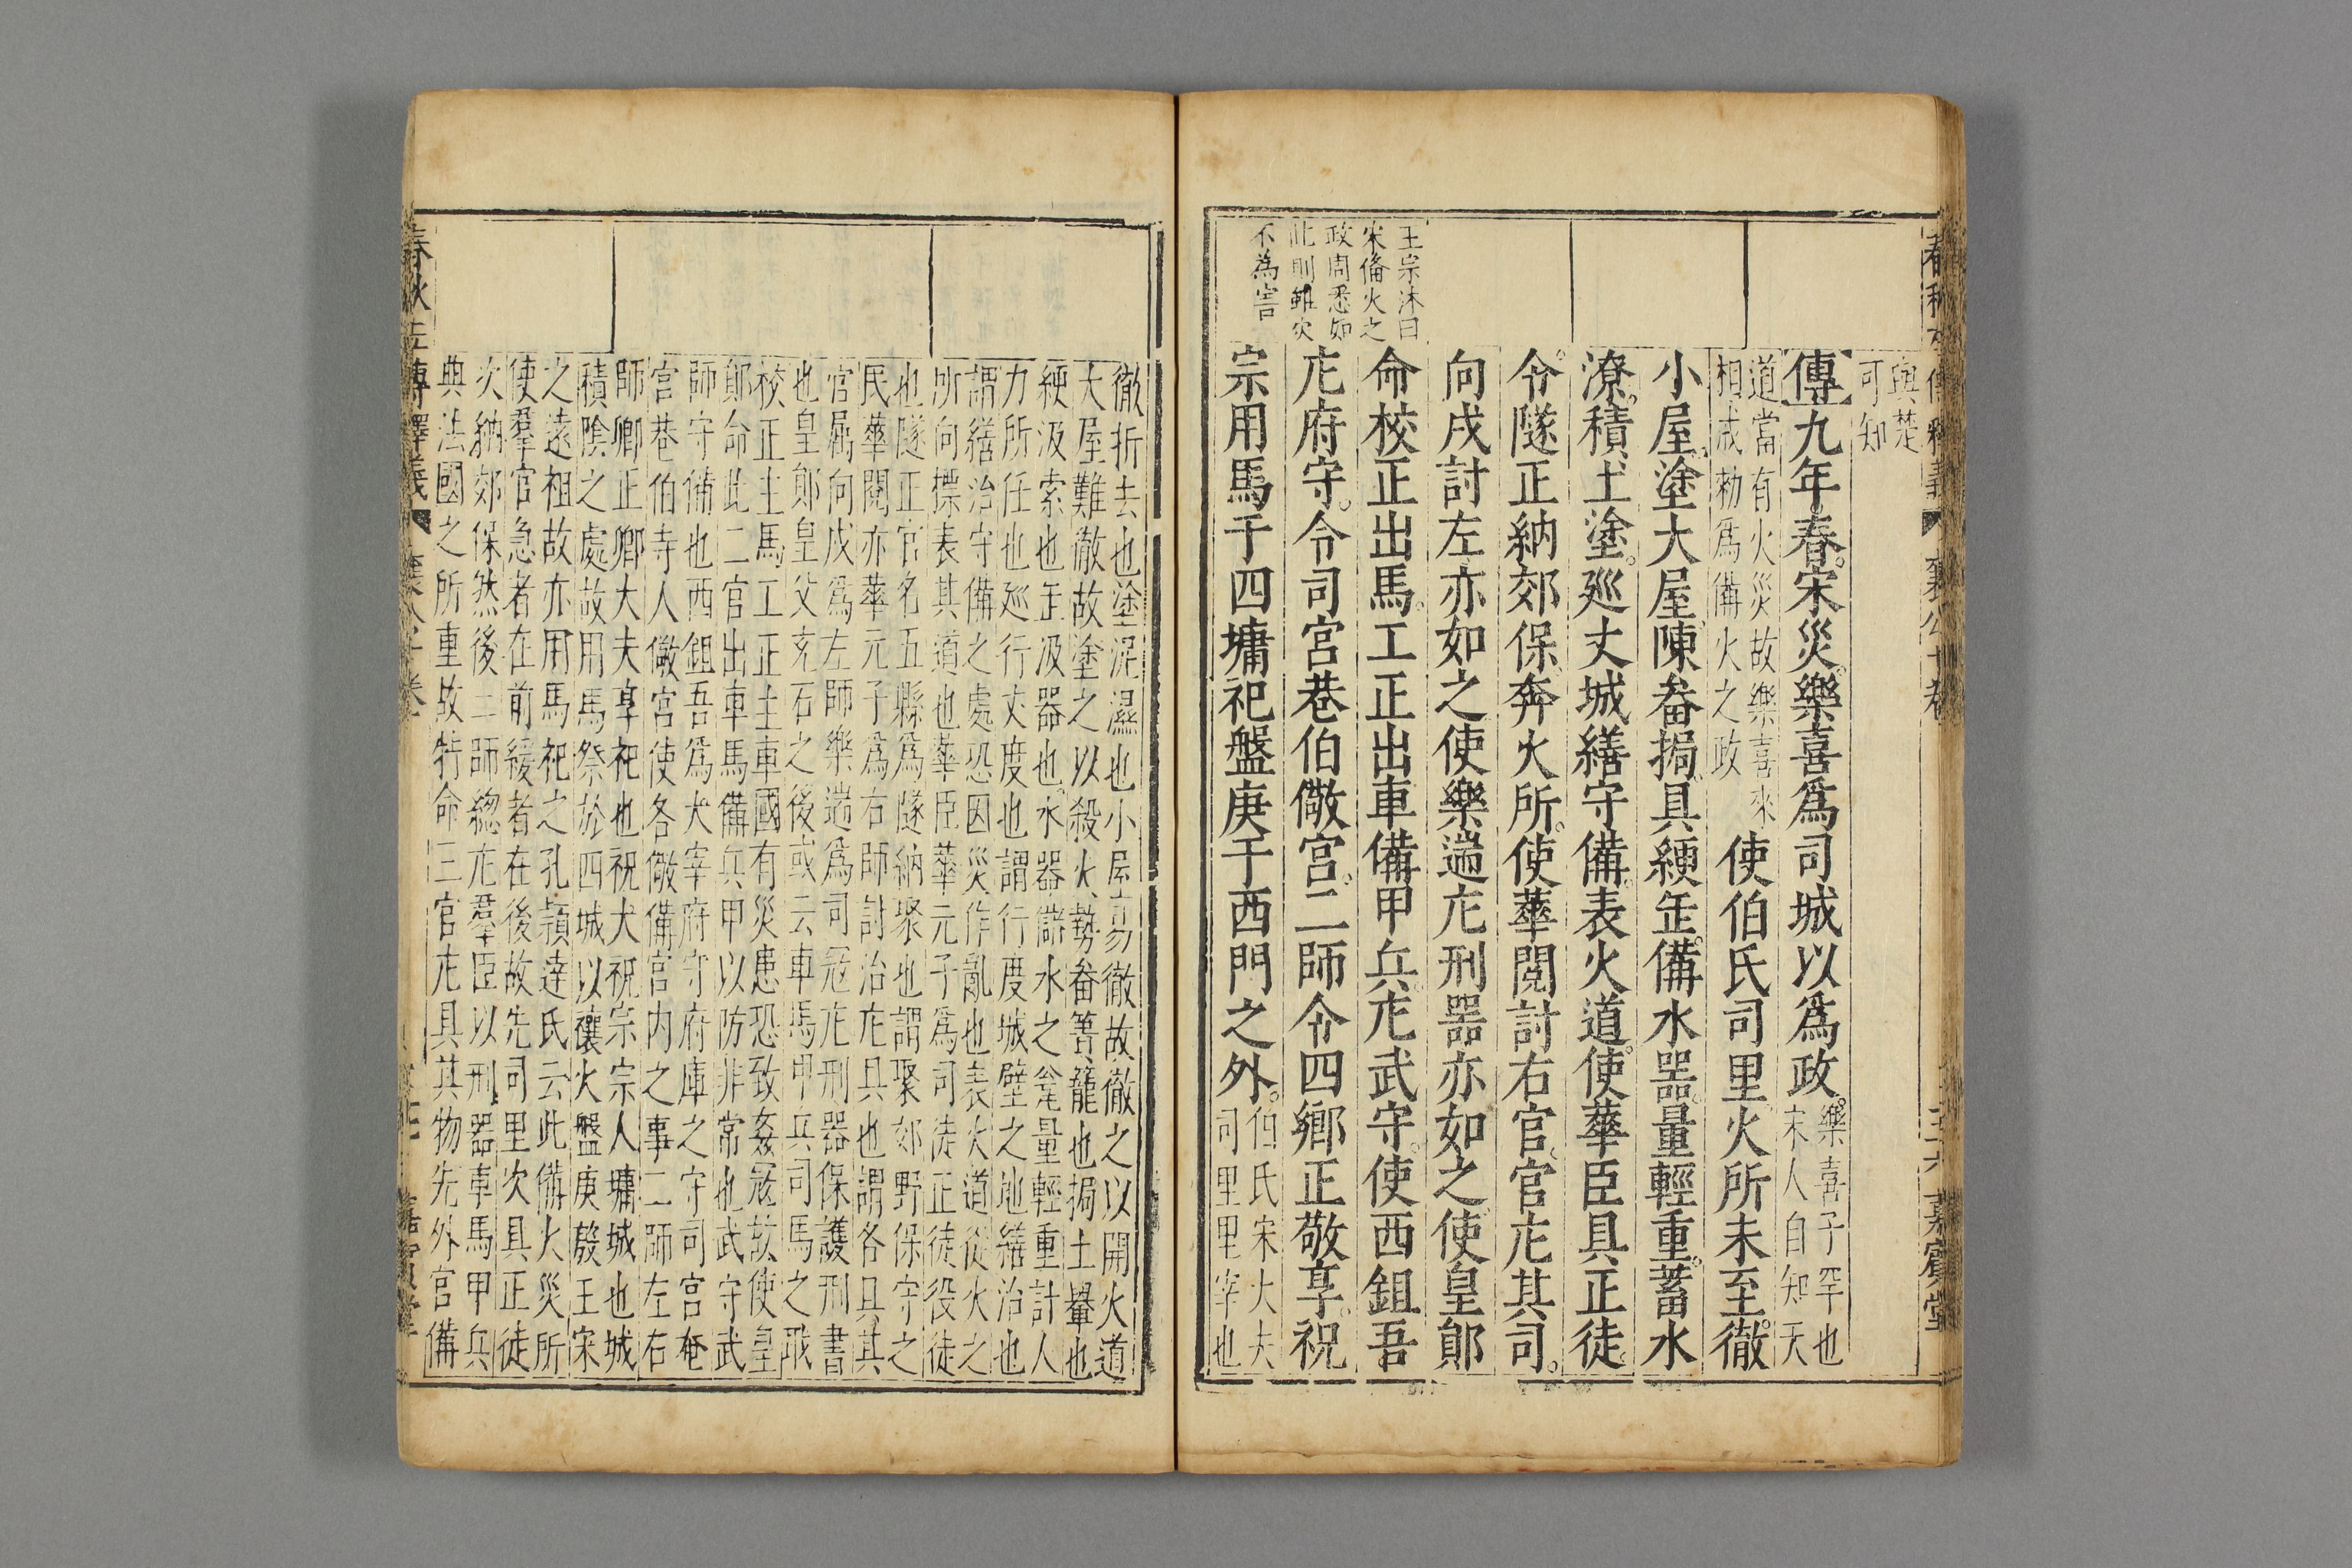 與楚
可知
傳九年春宋災樂喜爲司城以爲政樂喜子罕也
宋人自知天
道當有火災故樂喜來
相戒勑爲備火之政
使伯氏司里火所未至徹
小屋塗大屋陳畚挶具綆缶備水器量輕重蓄水
潦積土塗廵丈城繕守備表火道使華臣具正徒
令隧正納郊保奔火所使華閱討右官官庀其司
向戌討左亦如之使樂遄庀刑器亦如之使皇鄖
命校正出馬工正出車備甲兵庀武守使西鉏吾
庀府守令司宮巷伯儆宮二師令四鄉正敬享祝
宗用馬于四墉祀盤庚于西門之外伯氏宋大夫
司里里宰也
王宗沐曰
宋備火之
政周悉如
此則雖災
不為害
徹折去也塗泥濕也小屋易徹故徹之以開火道
大屋難徹故塗之以殺火勢畚簣籠也挶土轝也
綆汲索也缶汲器也水器儲水之瓮量輕重計人
力所任也廵行丈度也謂行度城壁之地繕治也
謂繕治守備之處恐因災作亂也表火道從火之
所向摽表其道也華臣華元子爲司徒正徒役徒
也隧正官名五縣爲隧納聚也謂聚郊野保守之
民華閱亦華元子爲右師討治庀具也謂各具其
官屬向戌爲左師樂遄爲司冦庀刑器保護刑書
也皇鄖皇父充石之後或云車馬甲兵司馬之職
校正主馬工正主車國有災患恐致姦冦故使皇
鄖命此二官出車馬備兵甲以防非常也武守武
師守備也西鉏吾爲大宰府守府庫之守司宮奄
官巷伯寺人儆宮使各儆備宮内之事二師左右
師鄉正鄉大夫享祀也祝大祝宗宗人墉城也城
積陰之處故用馬祭於四城以禳火盤庚殷王宋
之遠祖故亦用馬祀之孔頴達氏云此備火災所
使羣官急者在前緩者在後故先司里次具正徒
次納郊保然後二師緫庀羣臣以刑器車馬甲兵
典法國之所重故特命三官庀具其物先外官備
春秋左傳釋義